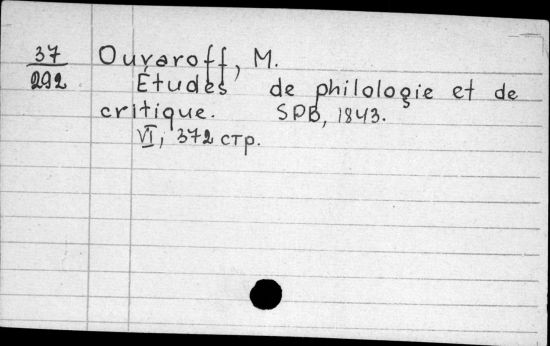 37
292
Ouvaroff, M.
Études de philologie et de
critique. SPB, 1843.
VI, 372 стр.